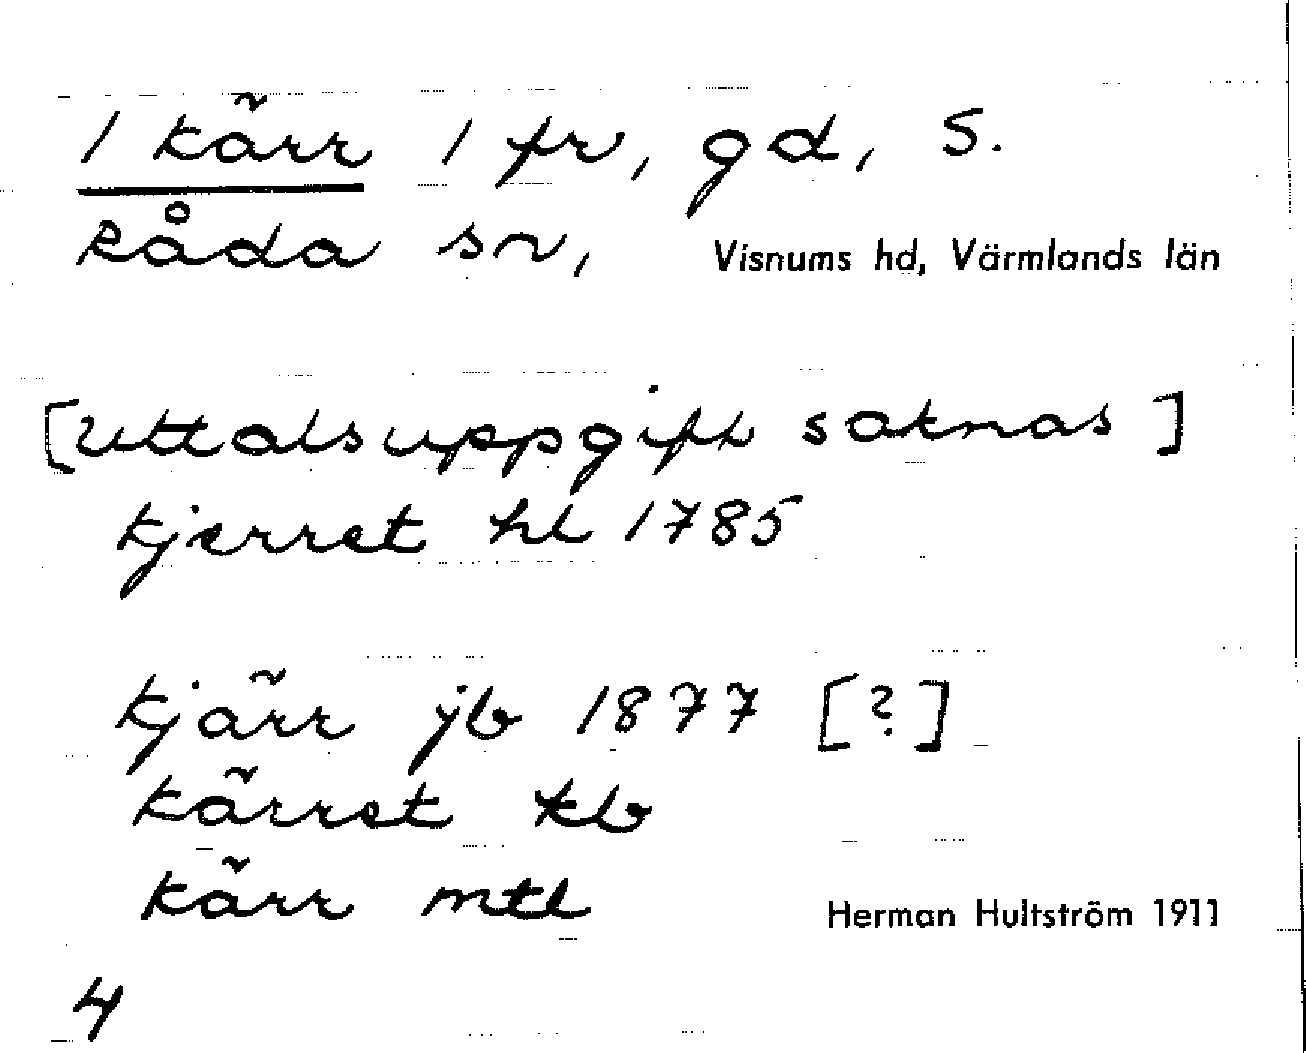 1 Kärr 1 fr, gd, S.
Råda sn, Visnums hd, Värmlands län
[Uttalsuppgift saknas]
Kjerret hl 1785
Kjärr jb 1877 [?]
Kärret kb
Kärr mtl
Herman Hultström 1911
4